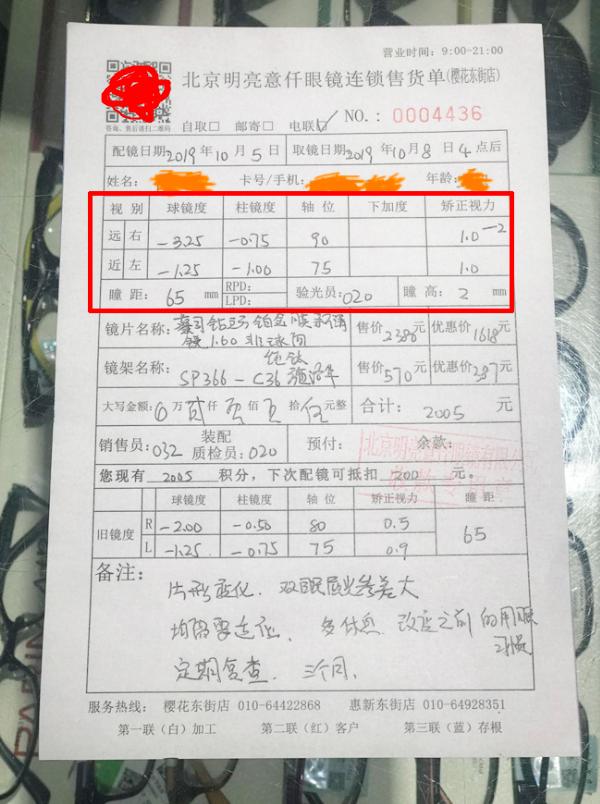 营业时间：9:00-21:00
北京明亮意仟眼镜连锁售货单(樱花东街店)
咨询、售后请扫二维码
自取□ 邮寄□ 电联☑ NO.: 0004436
配镜日期2019年10月5日 取镜日期2019年10月8日4点后
姓名： 卡号/手机： 年龄：
视别 球镜度 柱镜度 轴位 下加度 矫正视力
远 右 -3.25 -0.75 90 1.0-2
近 左 -1.25 -1.00 75 1.0
瞳距：65 mm RPD: LPD: 验光员：020 瞳高：2 mm
镜片名称： 售价2386元 优惠价1618元
1.60 非球面
镜架名称：纯钛 售价570元 优惠价387元
SP366-C36
大写金额：0万贰仟零佰零拾伍元整 合计：2005元
销售员：032 装配质检员：020 预付： 余款：
您现有2005积分，下次配镜可抵扣200元。
球镜度 柱镜度 轴位 矫正视力 瞳距
旧镜度 R -2.00 -0.50 80 0.5 65
L -1.25 -0.75 75 0.9
备注：
片形变化. 双眼屈光参差大
均需要适应. 多休息. 改变之前的用眼习惯
定期复查. 三个月.
服务热线： 樱花东街店 010-64422868 惠新东街店 010-64928351
第一联（白）加工 第二联（红）客户 第三联（蓝）存根